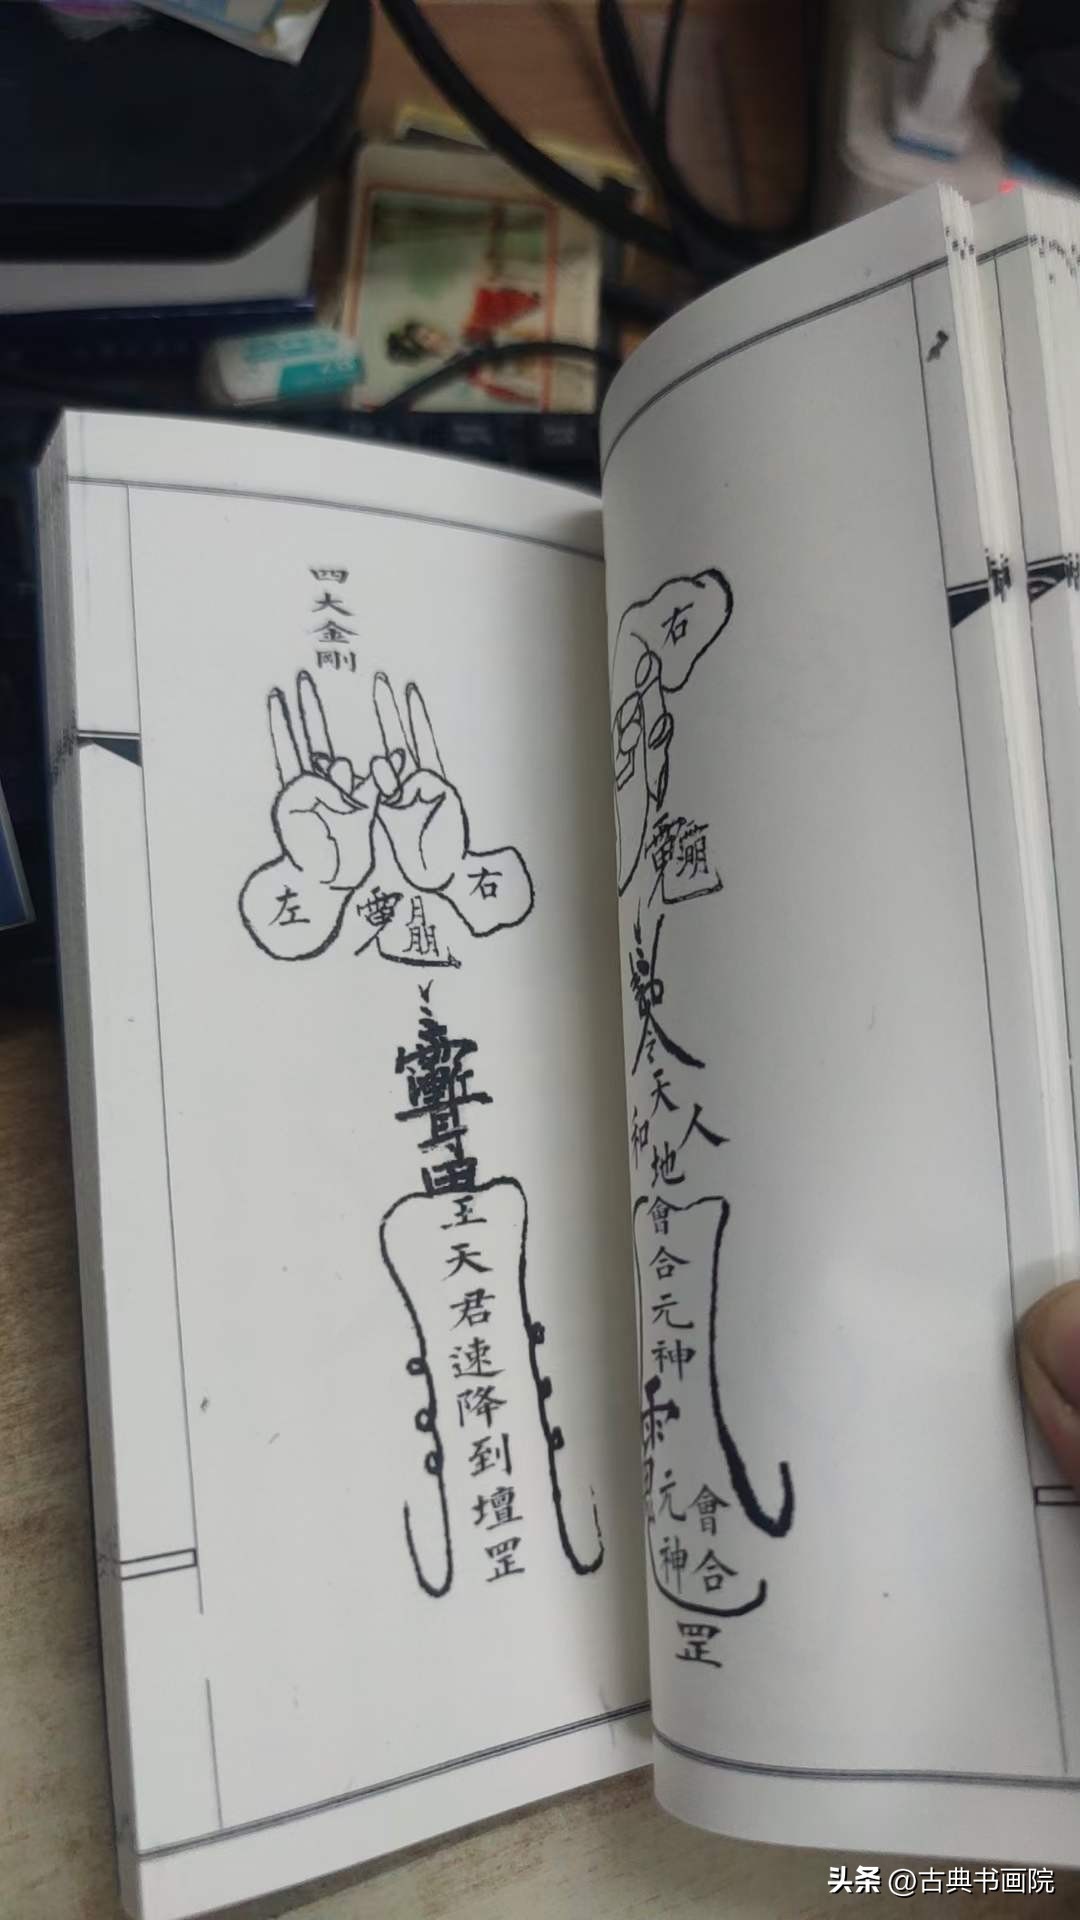 四大金剛
左
右
王天君速降到壇罡
右
令
天
和
人
地
會合元神
元神
會合
罡
头条 @古典书画院